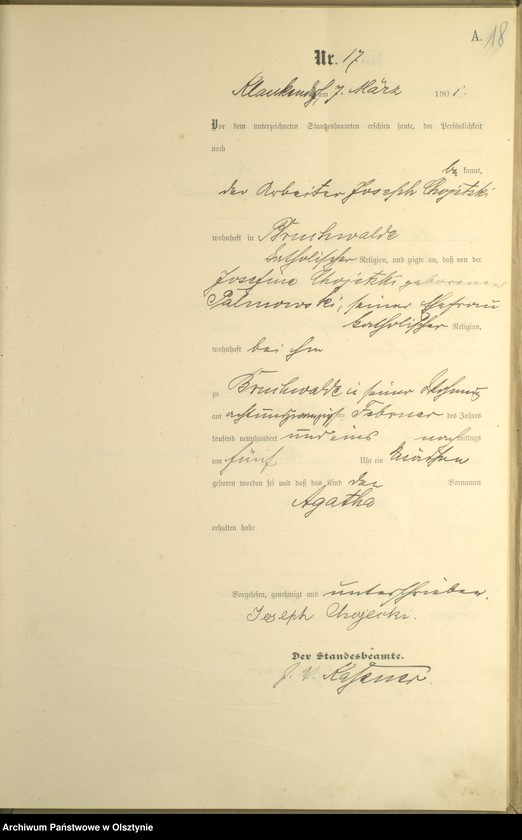 A. 18
Nr. 17.
Klaukendorf am 7. März 1901.
Vor dem unterzeichneten Standesbeamten erschien heute, der Persönlichkeit
nach
be kannt,
der Arbeiter Joseph Chojetzki
wohnhaft in Bruchwalde
katholischer Religion, und zeigte an, daß von der
Josefine Chojetzki geborenen
Palmowski, seiner Ehefrau
katholischer Religion,
wohnhaft bei ihm
zu Bruchwalde in seiner Wohnung
am achtundzwanzigsten Februar des Jahres
tausend neunhundert und eins nachmittags
um fünf Uhr ein Mädchen
geboren worden sei und daß das Kind den Vornamen
Agatha
erhalten habe
Vorgelesen, genehmigt und unterschrieben.
Joseph Chojecki.
Der Standesbeamte.
J. V.
Archiwum Państwowe w Olsztynie